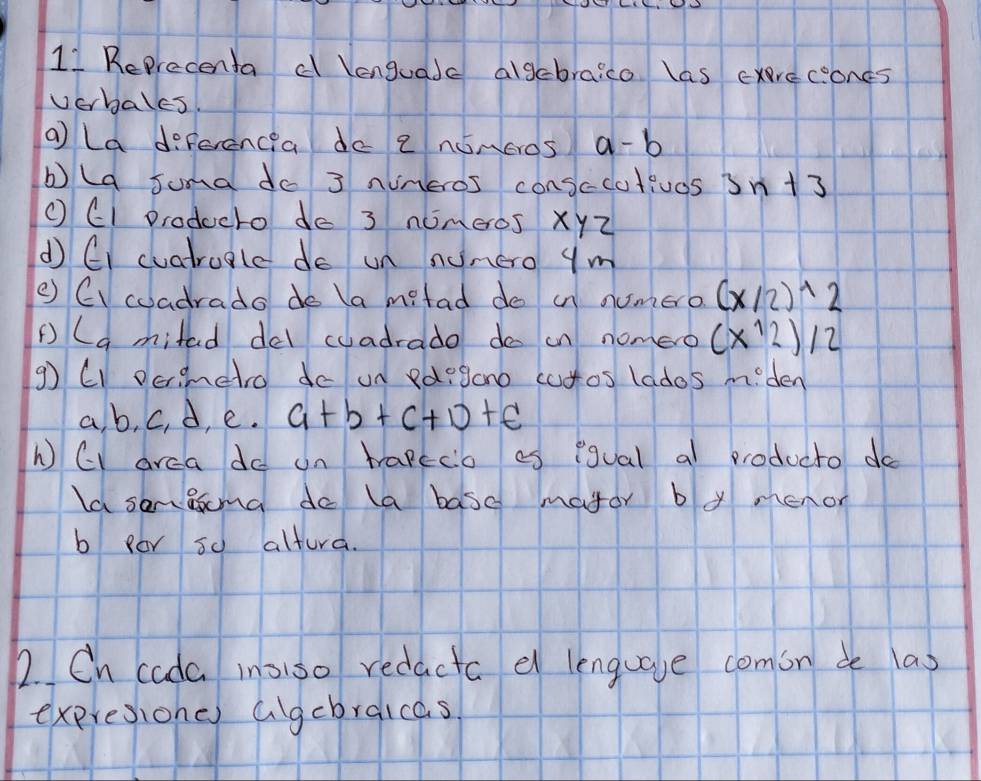 1:- Reprecenta el lenguaje algebraico las exprecciones
verbales.
a) La diferencia de 2 números a-b
b) La suma de 3 números consecutivos 3n+3
c) El producto de 3 números xyz
d) El cuatruple de un número 4m
e) El cuadrado de la mitad de un numero (x/2)^2
f) La mitad del cuadrado de un nomero (x^2)/2
g) El perimetro de un poligono cuyos lados miden
a, b, c, d, e. a+b+c+D+e
h) El area de un trapecio es igual al producto de
la semisuma de la base mayor b y menor
b por su altura.
2.- En cada insiso redacta el lenguaje común de las
expresiones algebraicas.